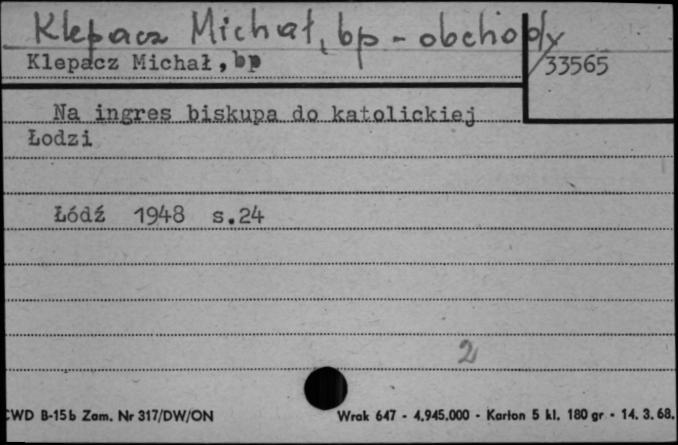 Klepacz Michał, bp - obchody
Klepacz Michał, bp
33565
Na ingres biskupa do katolickiej
Łodzi
Łódź 1948 s.24
2
CWD B-15b Zam. Nr 317/DW/ON
Wrak 647 - 4.945.000 - Karton 5 kl. 180 gr - 14. 3. 68.